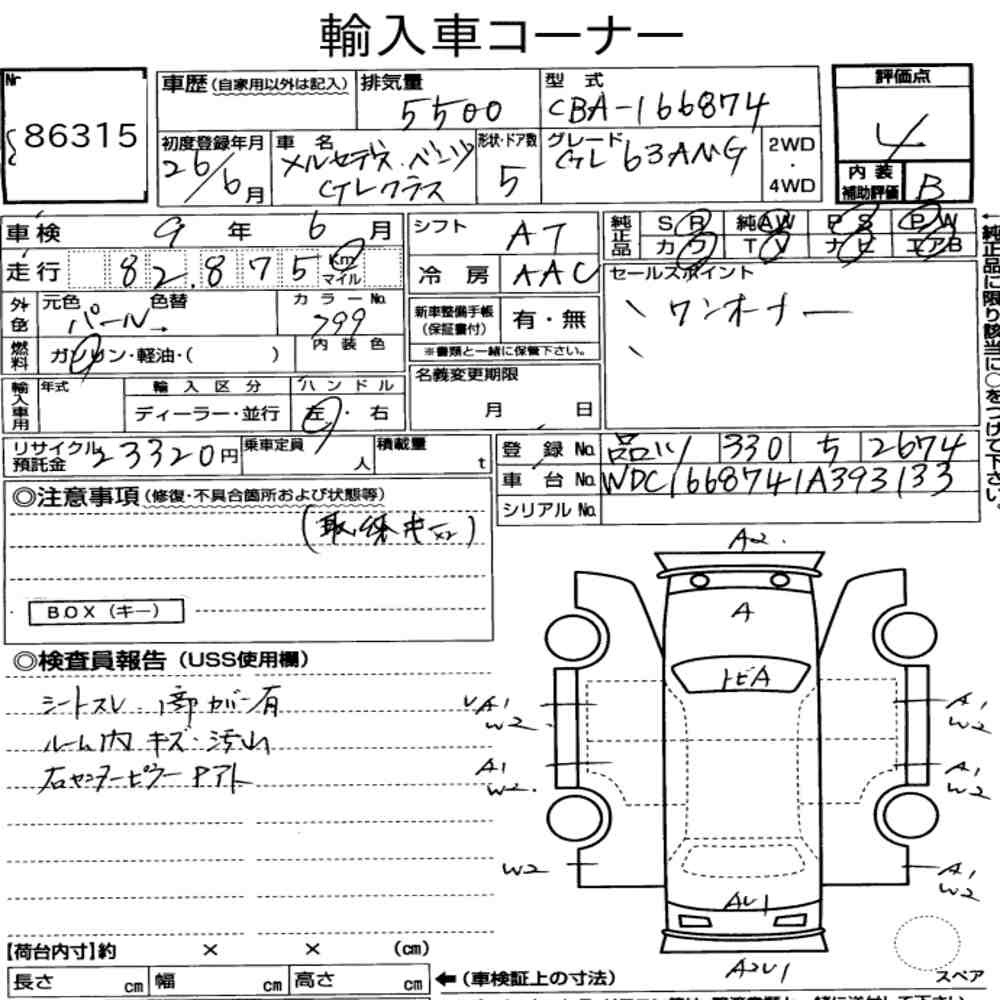 輸入車コーナー
Nr
86315
車歴(自家用以外は記入)
排気量
5500
型式
CBA-166874
評価点
4
初度登録年月
26/6月
車名
メルセデス・ベンツ
GLクラス
形状・ドア数
5
グレード
GL 63AMG
2WD
・
4WD
内装
補助評価
B
車検 9年 6月
シフト AT
純正品
SR 純AW PS PW
カワ TV ナビ エアB
走行 82.875 Km
マイル
冷房 AAC
セールスポイント
ワンオーナー
外色
元色 色替
パール→
カラーNo.
799
新車整備手帳
(保証書付)
有・無
※書類と一緒に保管下さい。
燃料
ガソリン・軽油・( )
内装色
名義変更期限
月 日
輸入車用
年式
輸入区分
ディーラー・並行
ハンドル
左・右
←純正品に限り該当に○をつけて下さい。
リサイクル
預託金
23320円
乗車定員
人
積載量
t
登録No. 品川 330 ち 2674
車台No. WDC1668741A393133
シリアルNo.
◎注意事項(修復・不具合箇所および状態等)
BOX(キー)
◎検査員報告(USS使用欄)
シートスレ・内部ガバ有
ルーム内 キズ・汚れ
右センターピラーPアト
A2.
A
トビA
A1
W2
A1
W2
A1
W2
A1
W2
W2
A1
W2
AU1
A2U1
スペア
【荷台内寸】約 × × (cm)
長さ cm 幅 cm 高さ cm
←(車検証上の寸法)